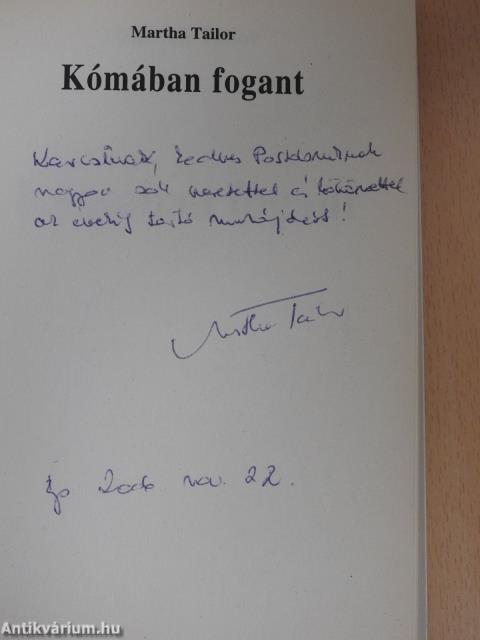 Martha Tailor
Kómában fogant
Karcsinak, kedves Postásunknak
nagyon sok szeretettel és köszönettel
az évekig tartó munkájáért!
Martha Tailor
2006 nov. 22.
Antikvárium.hu